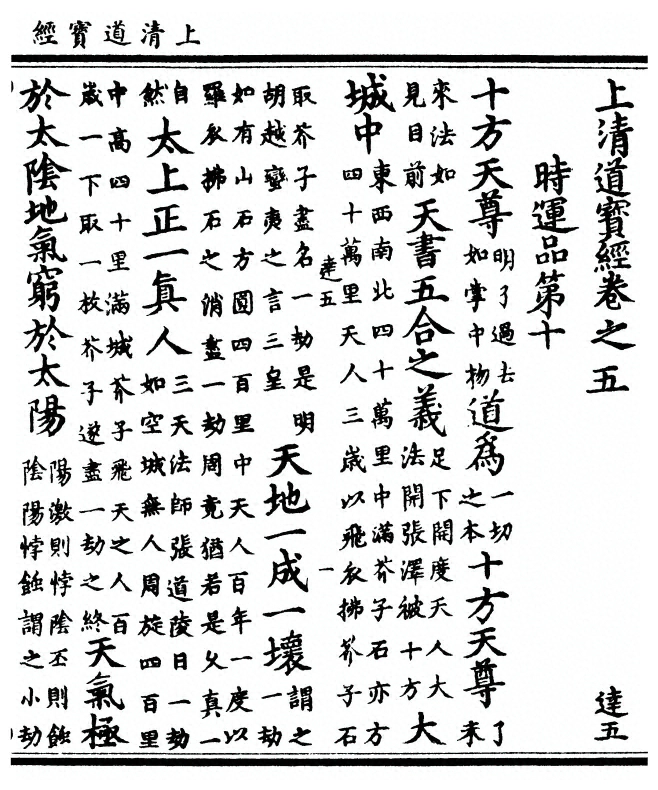 上清道寶經
上清道寶經卷之五 達五
時運品第十
十方天尊明了過去如掌中物道爲一切之本十方天尊了未
來法如見目前天書五合之義足下開度天人大法開張澤被十方大
城中東西南北四十萬里中滿芥子石亦方四十萬里天人三歲以飛衣拂芥子石
達五 一
取芥子盡名一劫是明胡越蠻夷之言三皇天地一成一壞謂之一劫
如有山石方圓四百里中天人百年一度以羅衣拂石之消盡一劫周竟猶若是父真一
自然太上正一真人三天法師張道陵曰一劫如空城無人周旋四百里
中高四十里滿城芥子飛天之人百歲一下取一枚芥子遂盡一劫之終天氣極
於太陰地氣窮於太陽陽激則悖陰丕則蝕陰陽悖蝕謂之小劫